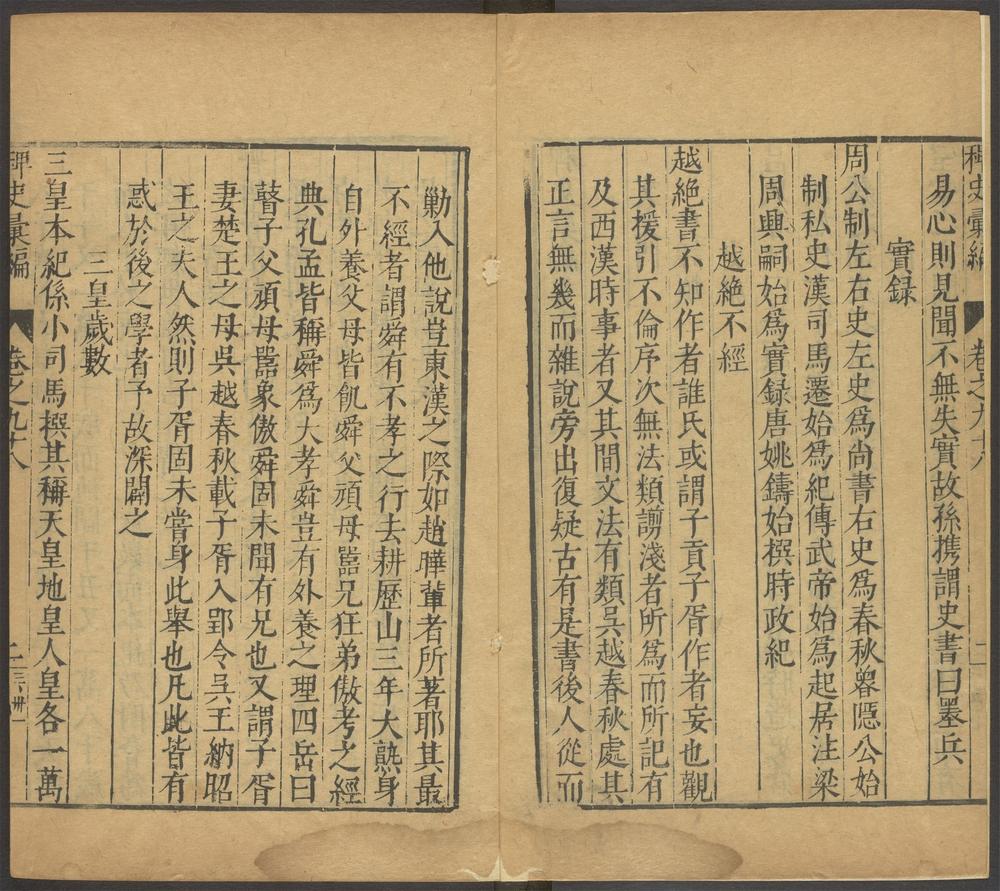 稗史彙編 卷之九十八 二
易心則見聞不無失實故孫携謂史書曰墨兵
實録
周公制左右史左史爲尚書右史爲春秋魯隱公始
制私史漢司馬遷始爲紀傳武帝始爲起居注梁
周興嗣始爲實録唐姚鑄始撰時政紀
越絶不經
越絶書不知作者誰氏或謂子貢子胥作者妄也觀
其援引不倫序次無法類謭淺者所爲而所記有
及西漢時事者又其間文法有類吳越春秋處其
正言無幾而雜説旁出復疑古有是書後人從而
勦入他說豈東漢之際如趙曄軰者所著耶其最
不經者謂舜有不孝之行去耕歷山三年大熟身
自外養父母皆飢舜父頑母嚚兄狂弟傲考之經
典孔孟皆稱舜爲大孝舜豈有外養之理四岳曰
瞽子父頑母嚚象傲舜固未聞有兄也又謂子胥
妻楚王之母吳越春秋載子胥入郢令吳王納昭
王之夫人然則子胥固未嘗身此舉也凡此皆有
惑於後之學者予故深闢之
三皇歲數
三皇本紀係小司馬撰其稱天皇地皇人皇各一萬
稗史彙編 卷之九十八